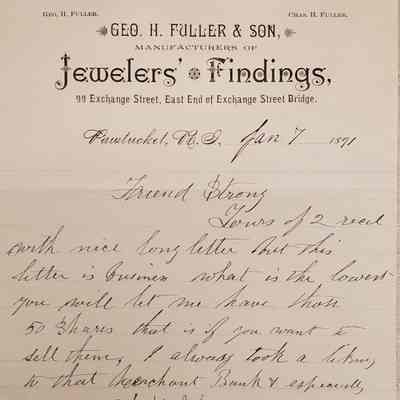 Geo. H. Fuller. Chas. H. Fuller.
GEO. H. FULLER & SON,
MANUFACTURERS OF
Jewelers' Findings,
99 Exchange Street, East End of Exchange Street Bridge.
Pawtucket, R. I., Jan 7 1891
Friend Strong
Yours of 2 recd
with nice long letter But this
letter is Business what is the lowest
you will let me have thoes
50 Shares that is if you want to
sell them, I always took a liking
to that Merchant Bank & especially